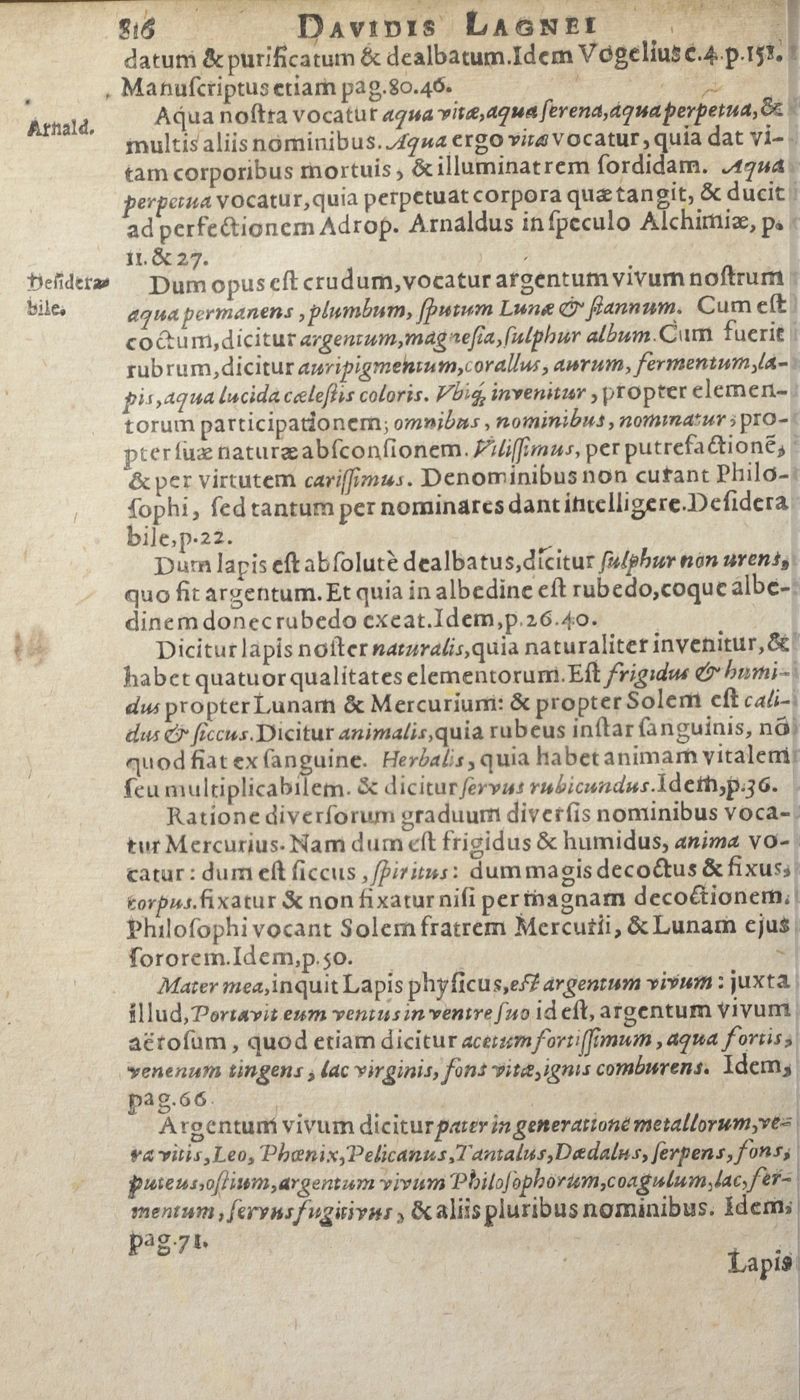 816 DAVIDIS LAGNEI
datum & purificatum & dealbatum. Idem Vogelius c.4.p.151.
Manuſcriptus etiam pag.80.46.
Arnald.
Aqua noſtra vocatur aqua vitæ, aqua ſerena, aqua perpetua, &
multis aliis nominibus. Aqua ergo vitæ vocatur, quia dat vi-
tam corporibus mortuis, & illuminat rem ſordidam. Aqua
perpetua vocatur, quia perpetuat corpora quæ tangit, & ducit
ad perfectionem Adrop. Arnaldus in ſpeculo Alchimiæ, p.
11. & 27.
Deſidera-
bile.
Dum opus eſt crudum, vocatur argentum vivum noſtrum
aqua permanens, plumbum, ſputum Lunæ & ſtannum. Cum eſt
coctum, dicitur argentum, magneſia, ſulphur album. Cum fuerit
rubrum, dicitur auripigmentum, corallus, aurum, fermentum, la-
pis, aqua lucida cæleſtis coloris. Vbiq; invenitur, propter elemen-
torum participationem; omnibus, nominibus, nominatur; pro-
pter ſuæ naturæ abſconſionem. Viliſſimus, per putrefactionē,
& per virtutem cariſſimus. De nominibus non curant Philo-
ſophi, ſed tantum per nominares dant intelligere. Deſidera
bile, p.22.
Dum lapis eſt abſolutè dealbatus, dicitur ſulphur non urens,
quo fit argentum. Et quia in albedine eſt rubedo, coque albe-
dinem donec rubedo exeat. Idem, p.26.40.
Dicitur lapis noſter naturalis, quia naturaliter invenitur, &
habet quatuor qualitates elementorum. Eſt frigidus & humi-
dus propter Lunam & Mercurium: & propter Solem eſt cali-
dus & ſiccus. Dicitur animalis, quia rubeus inſtar ſanguinis, nō
quod fiat ex ſanguine. Herbalis, quia habet animam vitalem
ſeu multiplicabilem. & dicitur ſervus rubicundus. Idem, p.36.
Ratione diverſorum graduum diverſis nominibus voca-
tur Mercurius. Nam dum eſt frigidus & humidus, anima vo-
catur: dum eſt ſiccus, ſpiritus: dum magis decoctus & fixus,
corpus. fixatur & non fixatur niſi per magnam decoctionem.
Philoſophi vocant Solem fratrem Mercurii, & Lunam ejus
ſororem. Idem, p.50.
Mater mea, inquit Lapis phyſicus, eſt argentum vivum: juxta
illud, Portavit eum ventus in ventre ſuo id eſt, argentum vivum
aëroſum, quod etiam dicitur acetum fortiſſimum, aqua fortis,
venenum tingens, lac virginis, fons vitæ, ignis comburens. Idem,
pag.66.
Argentum vivum dicitur pater in generatione metallorum, ve-
ra vitis, Leo, Phœnix, Pelicanus, Tantalus, Dædalus, ſerpens, fons,
puteus, oſtium, argentum vivum Philoſophorum, coagulum, lac, fer-
mentum, ſervus fugitivus, & aliis pluribus nominibus. Idem,
pag.71.
Lapis